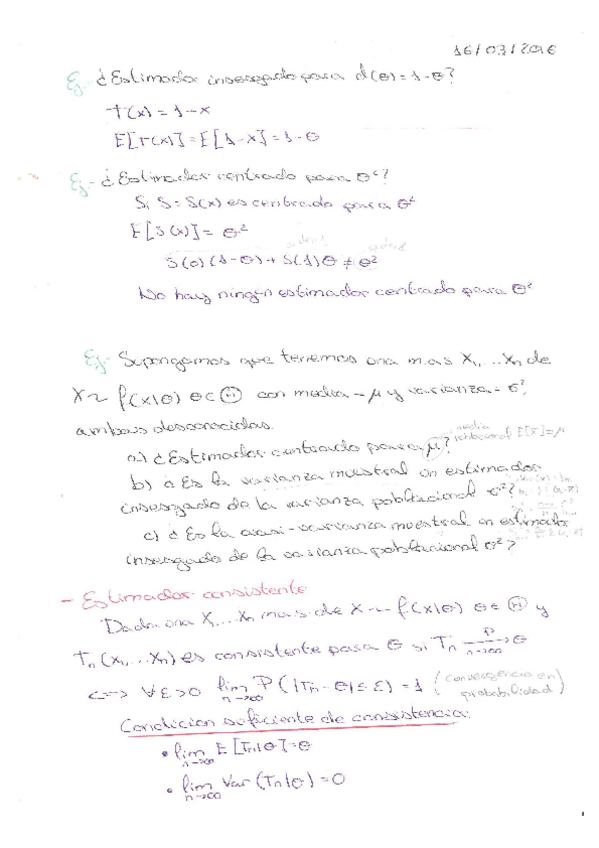 16/03/2016
Ej.- ¿Estimador insesgado para d(θ)=1-θ?
T(x)=1-x
E[T(x)]=E[1-x]=1-θ
Ej.- ¿Estimador centrado para θ²?
Si S=S(x) es centrado para θ²
E[S(x)]=θ²
S(0)(1-θ)+S(1)θ≠θ²
No hay ningún estimador centrado para θ²
Ej.- Supongamos que tenemos una m.a.s X₁,...Xn de
X~f(x|θ) θ∈Ⓗ con media=μ y varianza=σ²,
ambas desconocidas.
a) ¿Estimador centrado para μ? media poblacional E[x̄]=μ
b) ¿Es la varianza muestral un estimador
insesgado de la varianza poblacional σ²?
c) ¿Es la cuasi-varianza muestral un estimador
insesgado de la varianza poblacional σ²?
- Estimador consistente
Dada una X₁,...Xn m.a.s de X~f(x|θ) θ∈Ⓗ y
Tn(x₁,...xn) es consistente para θ si Tn →ᴾ n→∞ θ
<=> ∀ε>0 lim n→∞ P(|Tn-θ|≤ε)=1 (convergencia en
probabilidad)
Condición suficiente de consistencia:
• lim n→∞ E[Tn|θ]=θ
• lim n→∞ Var(Tn|θ)=0